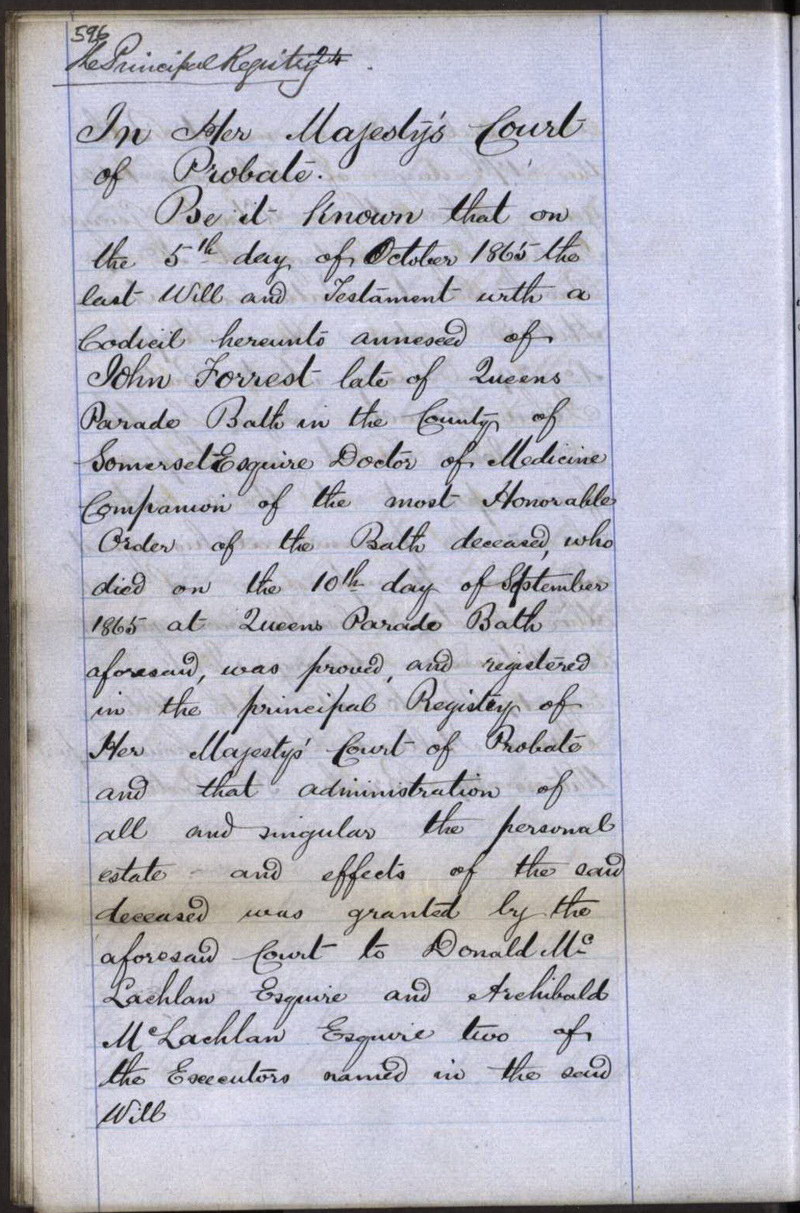 596
the Principal Registry
In Her Majesty's Court
of Probate.
Be it known that on
the 5th day of October 1865 the
last Will and Testament with a
Codicil hereunto annexed of
John Forrest late of Queens
Parade Bath in the County of
Somerset Esquire Doctor of Medicine
Companion of the most Honorable
Order of the Bath deceased, who
died on the 10th day of September
1865 at Queens Parade Bath
aforesaid, was proved, and registered
in the principal Registry of
Her Majestys' Court of Probate
and that administration of
all and singular the personal
estate and effects of the said
deceased was granted by the
aforesaid Court to Donald Mc
Lachlan Esquire and Archibald
McLachlan Esquire two of
the Executors named in the said
Will